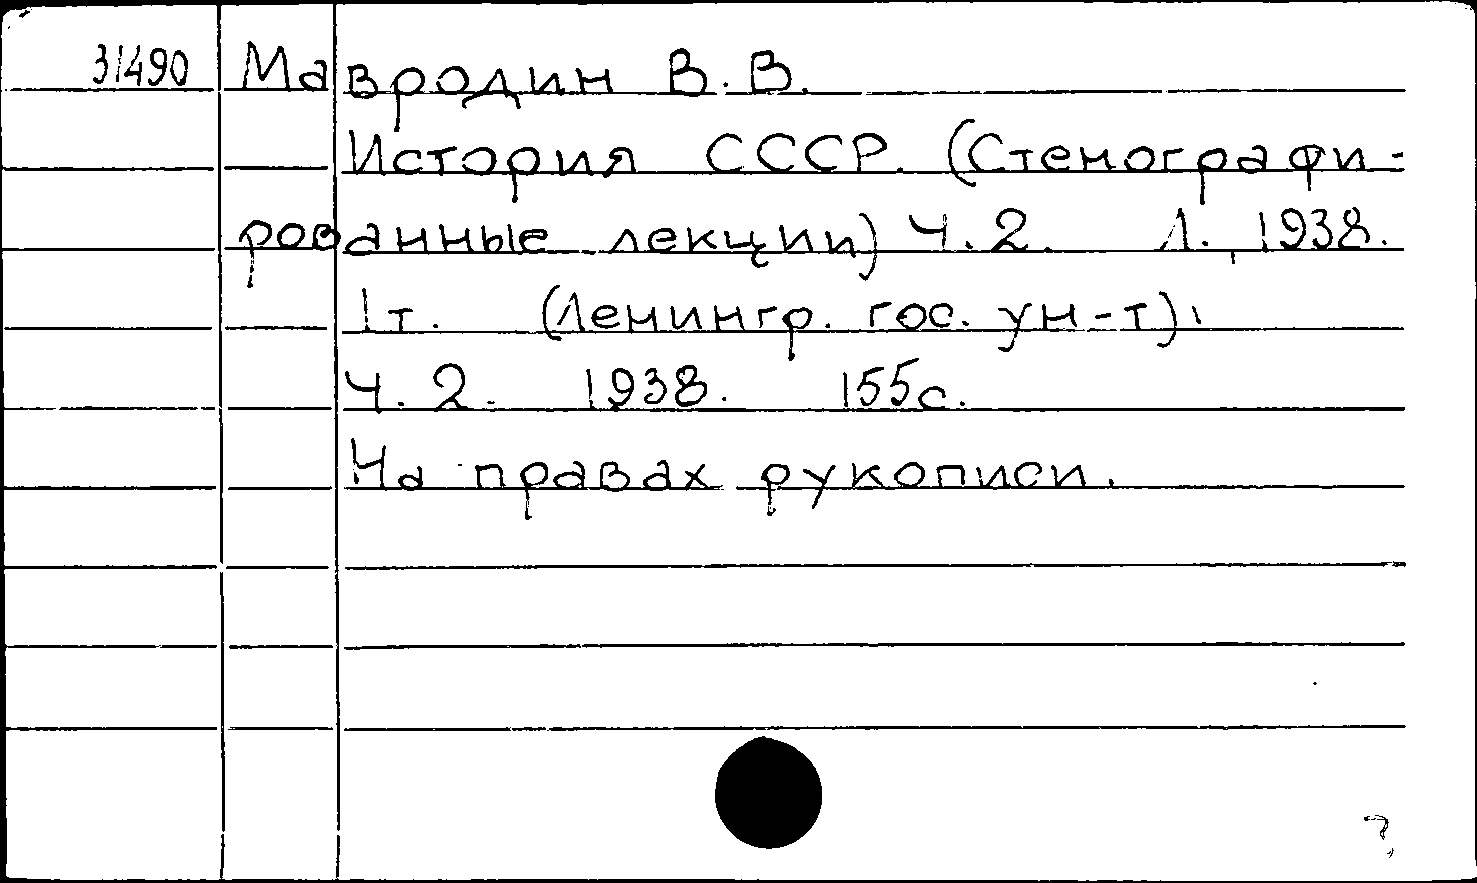 31490 Мавродин В.В.
История СССР. (Стенографи-
рованные лекции) Ч.2. Л., 1938.
1т. (Ленингр. гос. ун-т).
Ч. 2. 1938. 155с.
На правах рукописи.
?